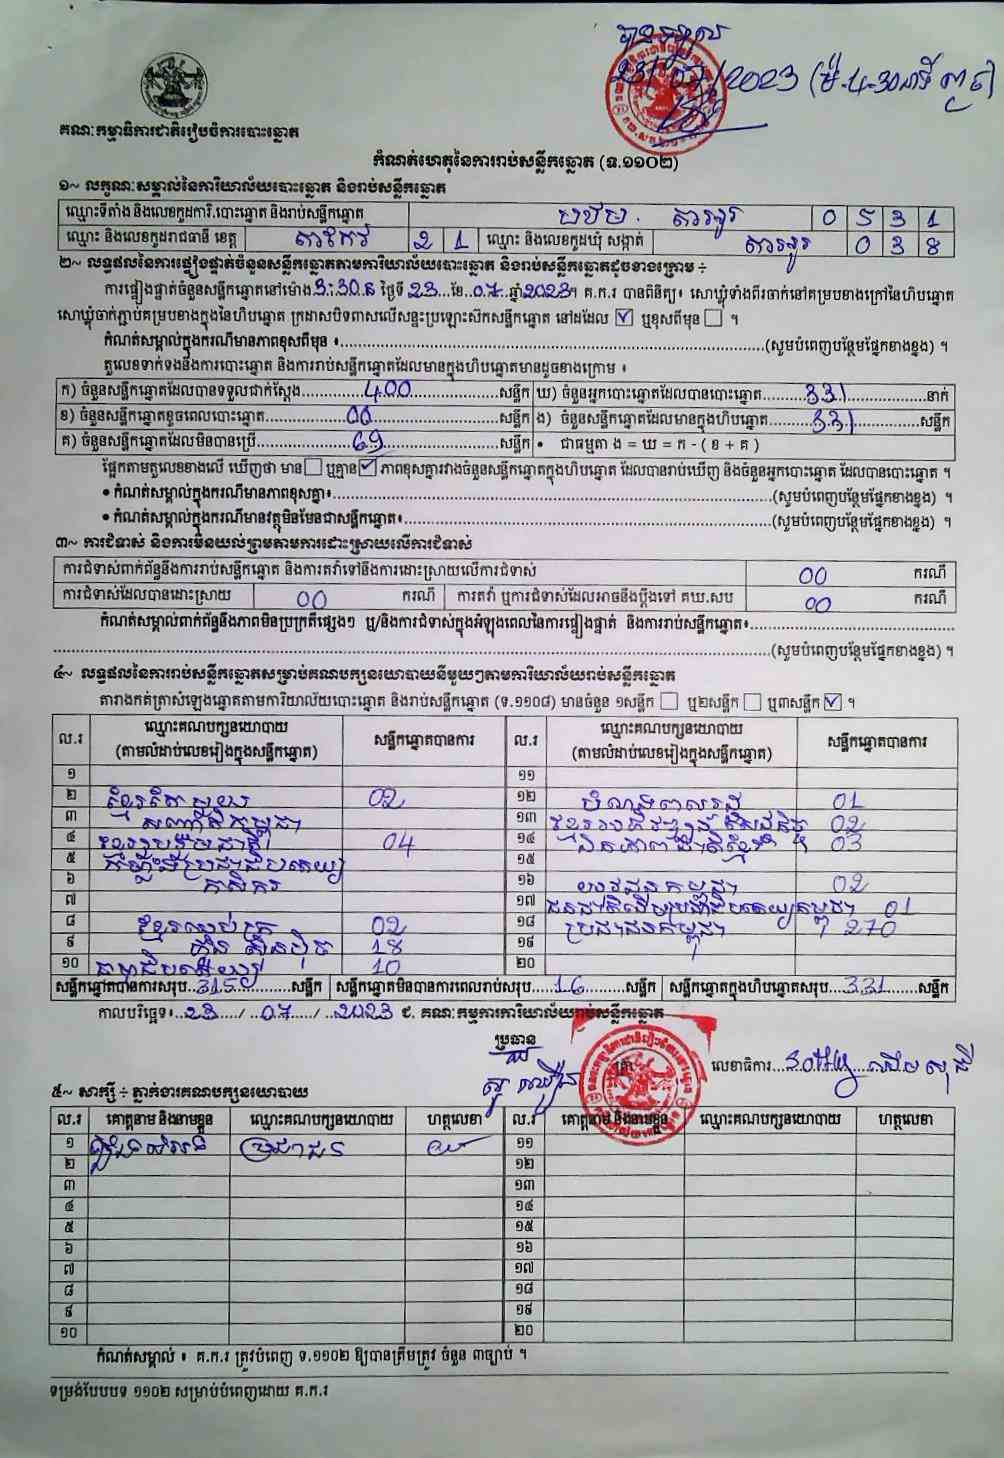 បានទទួល
23/07/2023 (ម៉.4-30នាទី
គណៈកម្មាធិការជាតិរៀបចំការបោះឆ្នោត
កំណត់ហេតុនៃការរាប់សន្លឹកឆ្នោត (ទ.១១០២)
១~ លក្ខណៈសម្គាល់នៃការិយាល័យបោះឆ្នោត និងរាប់សន្លឹកឆ្នោត
ឈ្មោះទីតាំង និងលេខកូដការិ.បោះឆ្នោត និងរាប់សន្លឹកឆ្នោត 0 5 3 1
ឈ្មោះ និងលេខកូដរាជធានី ខេត្ត តាកែវ 2 1 ឈ្មោះ និងលេខកូដឃុំ សង្កាត់ 0 3 8
២~ លទ្ធផលនៃការផ្ទៀងផ្ទាត់ចំនួនសន្លឹកឆ្នោតតាមការិយាល័យបោះឆ្នោត និងរាប់សន្លឹកឆ្នោតដូចខាងក្រោម ÷
ការផ្ទៀងផ្ទាត់ចំនួនសន្លឹកឆ្នោតនៅម៉ោង 3:30 ថ្ងៃទី 23 ខែ 07 ឆ្នាំ 2023 ។ គ.ក.រ បានពិនិត្យ៖ សោឃ្មុំទាំងពីរចាក់នៅគម្របខាងក្រៅនៃហិបឆ្នោត
សោឃ្មុំចាក់ភ្ជាប់គម្របខាងក្នុងនៃហិបឆ្នោត ក្រដាសបិទពាសលើសន្ទះប្រឡោះសិកសន្លឹកឆ្នោត នៅដដែល ☑ ឬខុសពីមុន ☐ ។
កំណត់សម្គាល់ក្នុងករណីមានភាពខុសពីមុន ៖..........(សូមបំពេញបន្ថែមផ្នែកខាងខ្នង) ។
តួលេខទាក់ទងនឹងការបោះឆ្នោត និងការរាប់សន្លឹកឆ្នោតដែលមានក្នុងហិបឆ្នោតមានដូចខាងក្រោម ៖
ក) ចំនួនសន្លឹកឆ្នោតដែលបានទទួលជាក់ស្តែង 400 សន្លឹក ឃ) ចំនួនអ្នកបោះឆ្នោតដែលបានបោះឆ្នោត 331 នាក់
ខ) ចំនួនសន្លឹកឆ្នោតខូចពេលបោះឆ្នោត 00 សន្លឹក ង) ចំនួនសន្លឹកឆ្នោតដែលមានក្នុងហិបឆ្នោត 331 សន្លឹក
គ) ចំនួនសន្លឹកឆ្នោតដែលមិនបានប្រើ 69 សន្លឹក • ជាធម្មតា ង = ឃ = ក - ( ខ + គ )
ផ្អែកតាមតួលេខខាងលើ ឃើញថា មាន ☐ ឬគ្មាន ☑ ភាពខុសគ្នារវាងចំនួនសន្លឹកឆ្នោតក្នុងហិបឆ្នោត ដែលបានរាប់ឃើញ និងចំនួនអ្នកបោះឆ្នោត ដែលបានបោះឆ្នោត ។
• កំណត់សម្គាល់ក្នុងករណីមានភាពខុសគ្នា៖..........(សូមបំពេញបន្ថែមផ្នែកខាងខ្នង) ។
• កំណត់សម្គាល់ក្នុងករណីមានវត្ថុមិនមែនជាសន្លឹកឆ្នោត៖..........(សូមបំពេញបន្ថែមផ្នែកខាងខ្នង) ។
៣~ ការជំទាស់ និងការមិនយល់ព្រមតាមការដោះស្រាយលើការជំទាស់
ការជំទាស់ពាក់ព័ន្ធនឹងការរាប់សន្លឹកឆ្នោត និងការតវ៉ាទៅនឹងការដោះស្រាយលើការជំទាស់ 00 ករណី
ការជំទាស់ដែលបានដោះស្រាយ 00 ករណី ការតវ៉ា ឬការជំទាស់ដែលអាចនឹងប្តឹងទៅ គឃ.សប 00 ករណី
កំណត់សម្គាល់ពាក់ព័ន្ធនឹងភាពមិនប្រក្រតីផ្សេងៗ ឬ/និងការជំទាស់ក្នុងអំឡុងពេលនៃការផ្ទៀងផ្ទាត់ និងការរាប់សន្លឹកឆ្នោត៖..........
..........(សូមបំពេញបន្ថែមផ្នែកខាងខ្នង) ។
៤~ លទ្ធផលនៃការរាប់សន្លឹកឆ្នោតសម្រាប់គណបក្សនយោបាយនីមួយៗតាមការិយាល័យរាប់សន្លឹកឆ្នោត
តារាងកត់ត្រាសំឡេងឆ្នោតតាមការិយាល័យបោះឆ្នោត និងរាប់សន្លឹកឆ្នោត (ទ.១១០៨) មានចំនួន ១សន្លឹក ☐ ឬ២សន្លឹក ☐ ឬ៣សន្លឹក ☑ ។
ល.រ ឈ្មោះគណបក្សនយោបាយ (តាមលំដាប់លេខរៀងក្នុងសន្លឹកឆ្នោត) សន្លឹកឆ្នោតបានការ ល.រ ឈ្មោះគណបក្សនយោបាយ (តាមលំដាប់លេខរៀងក្នុងសន្លឹកឆ្នោត) សន្លឹកឆ្នោតបានការ
១ ១១
២ 02 ១២ 01
៣ ១៣ 02
៤ ខ្មែររួបរួមជាតិ 04 ១៤ 03
៥ ១៥
៦ កសិករ ១៦ 02
៧ ១៧ 01
៨ 02 ១៨ ប្រជាជនកម្ពុជា 270
៩ ហ៊្វុនស៊ិនប៉ិច 18 ១៩
១០ 10 ២០
សន្លឹកឆ្នោតបានការសរុប 315 សន្លឹក សន្លឹកឆ្នោតមិនបានការពេលរាប់សរុប 16 សន្លឹក សន្លឹកឆ្នោតក្នុងហិបឆ្នោតសរុប 331 សន្លឹក
កាលបរិច្ឆេទ៖ 23 / 07 / 2023 ជ. គណៈកម្មការការិយាល័យរាប់សន្លឹកឆ្នោត
ប្រធាន
លេខាធិការ
៥~ សាក្សី ÷ ភ្នាក់ងារគណបក្សនយោបាយ
ល.រ គោត្តនាម និងនាមខ្លួន ឈ្មោះគណបក្សនយោបាយ ហត្ថលេខា ល.រ គោត្តនាម និងនាមខ្លួន ឈ្មោះគណបក្សនយោបាយ ហត្ថលេខា
១ ប្រជាជន ១១
២ ១២
៣ ១៣
៤ ១៤
៥ ១៥
៦ ១៦
៧ ១៧
៨ ១៨
៩ ១៩
១០ ២០
កំណត់សម្គាល់ ៖ គ.ក.រ ត្រូវបំពេញ ទ.១១០២ ឱ្យបានត្រឹមត្រូវ ចំនួន ៣ច្បាប់ ។
ទម្រង់បែបបទ ១១០២ សម្រាប់បំពេញដោយ គ.ក.រ